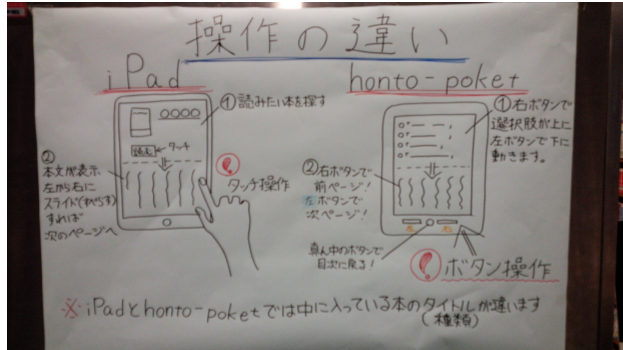 操作の違い
iPad
①読みたい本を探す
読む
タッチ
②
本文が表示
左から右に
スライド(ずらす)
すれば
次のページへ
タッチ操作
honto-poket
①右ボタンで
選択肢が上に
左ボタンで下に
動きます。
②右ボタンで
前ページ!
左ボタンで
次ページ!
真ん中のボタンで
目次に戻る!
ボタン操作
※iPadとhonto-poketでは中に入っている本のタイトルが違います
(種類)